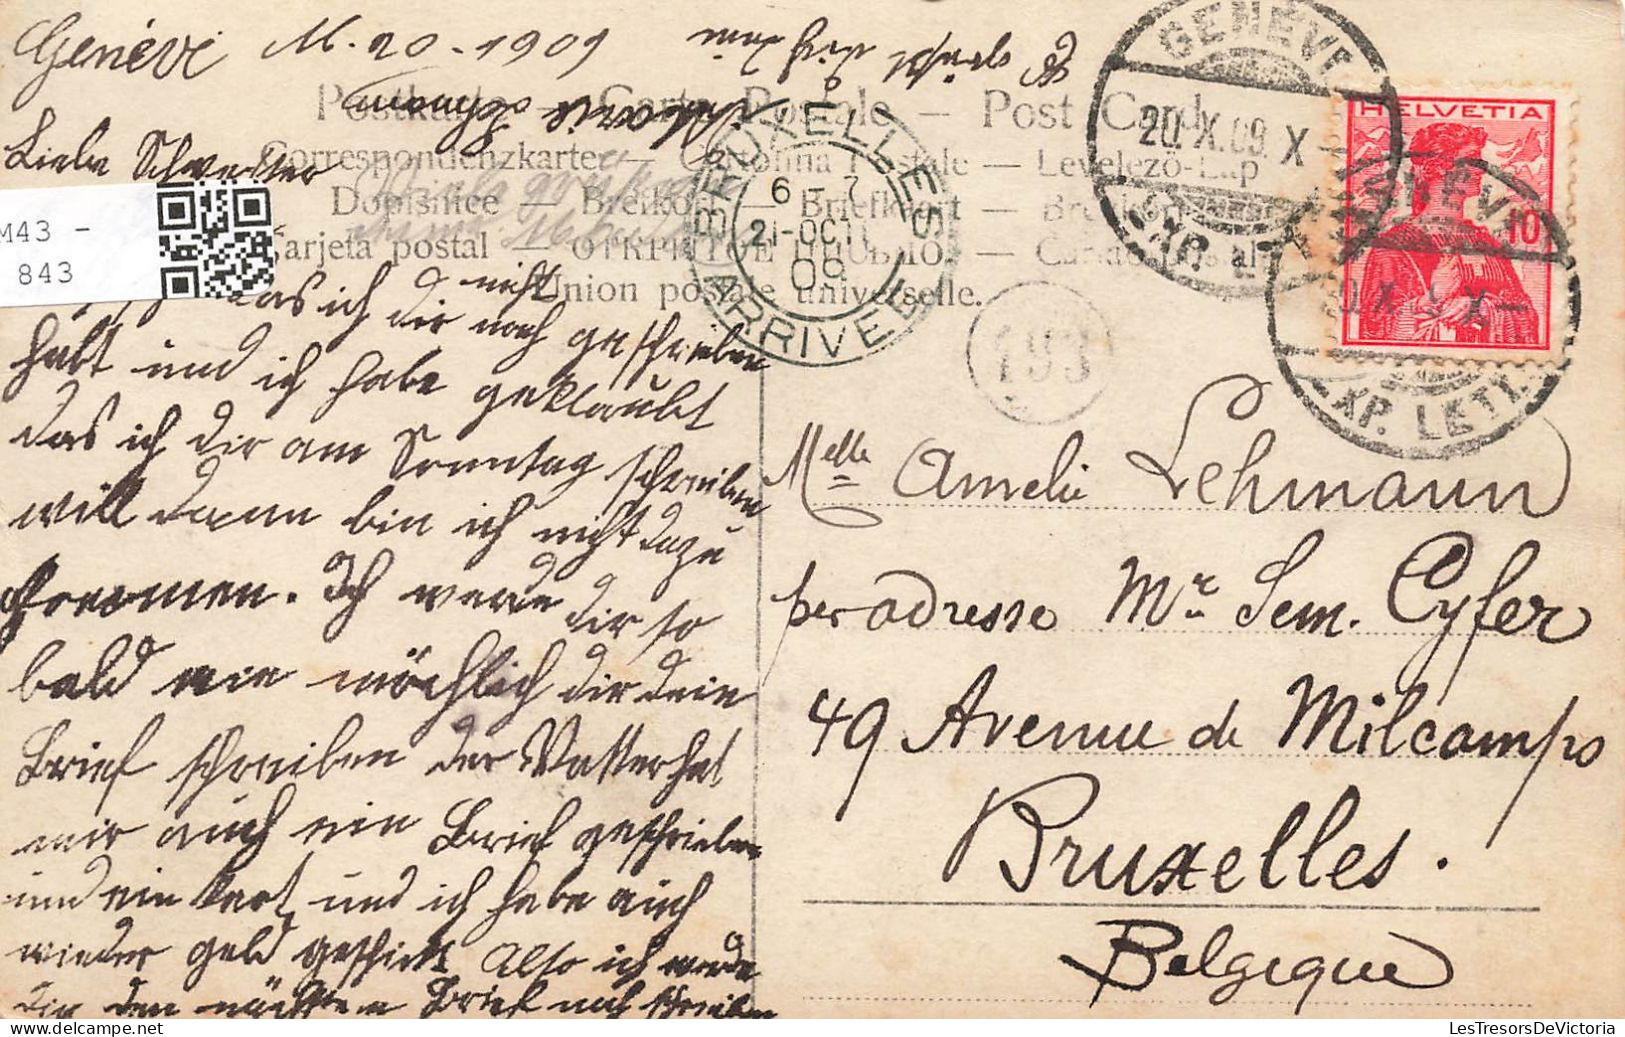 Genève M. 20 - 1909
Postkarte — Carte Postale — Post Card
Correspondenzkarte — Cartolina Postale — Levelező-Lap
Dopisnice — Briefkaart
Tarjeta postal — ОТКРЫТОЕ ПИСЬМО
Union postale universelle.
Liebe Schwester
M43 -
843
das ich dir nicht noch geschrieben
habt und ich habe geklaubt
das ich dir am Sonntag schreiben
will dann bin ich nicht dazu
kommen. Ich werde dir so
bald wie möchlich dir dein
Brief schreiben der Vatter hat
mir auch ein Brief geschrieben
und ein kart und ich habe auch
wieder geld geschickt Also ich werde
dir den nächsten Brief noch schreiben
BRUXELLES
6 - 7
21 - OCT
09
ARRIVEE
193
GENÈVE
20. X. 09. X
EXP. LETT.
HELVETIA
10
GENÈVE
20. X. 09. X
EXP. LETT.
Melle Amelie Lehmann
per adresse Mr Sem. Cyfer
49 Avenue de Milcamps
Bruxelles.
Belgique
LesTresorsDeVictoria